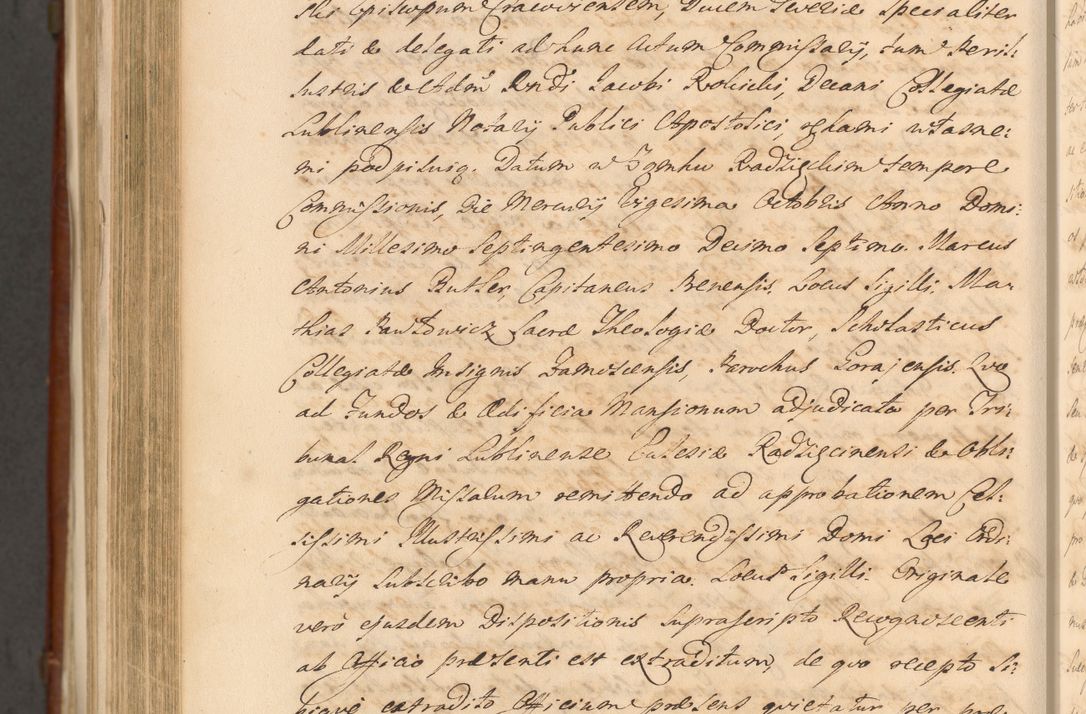 Episcopum Cracoviensem, Ducem Severiæ specialiter
dati & delegati ad hunc Actum Commissarÿ, tum Peril-
lustris & Adm Rndi Jacobi Decani Collegiatæ
Lublinensis Notarÿ Publici Apostolici, rękami własne-
mi podpisuią. Datum w Zamku Radzięckim tempore
Commissionis, Die Mercurÿ Vigesima Octobris Anno Domi-
ni Millesimo Septingentesimo Decimo Septimo. Marcus
Antonius Butler, Capitaneus Prenensis. Locus Sigilli. Mat-
thias Pawłowicz Sacræ Theologiæ Doctor, Scholasticus
Collegiatæ Insignis Zamoscensis, Parochus Gorajensis. Quo
ad Fundos & Ædificia Mansionum adjudicata per Tri-
bunal Regni Lublinense Ecclesiæ Radzięcinensi & Obli-
gationes Missarum remittendo ad approbationem Cel-
sissimi Illustrissimi ac Reverendissimi Domi Loci Ordi-
narÿ subscribo manu propria. Locus Sigilli. Originale
verò ejusdem Dispositionis suprascripto Recognoscenti
ab Officio præsenti est extraditum, de quo recepto si-
bique extradito Officium præsens quietatur per